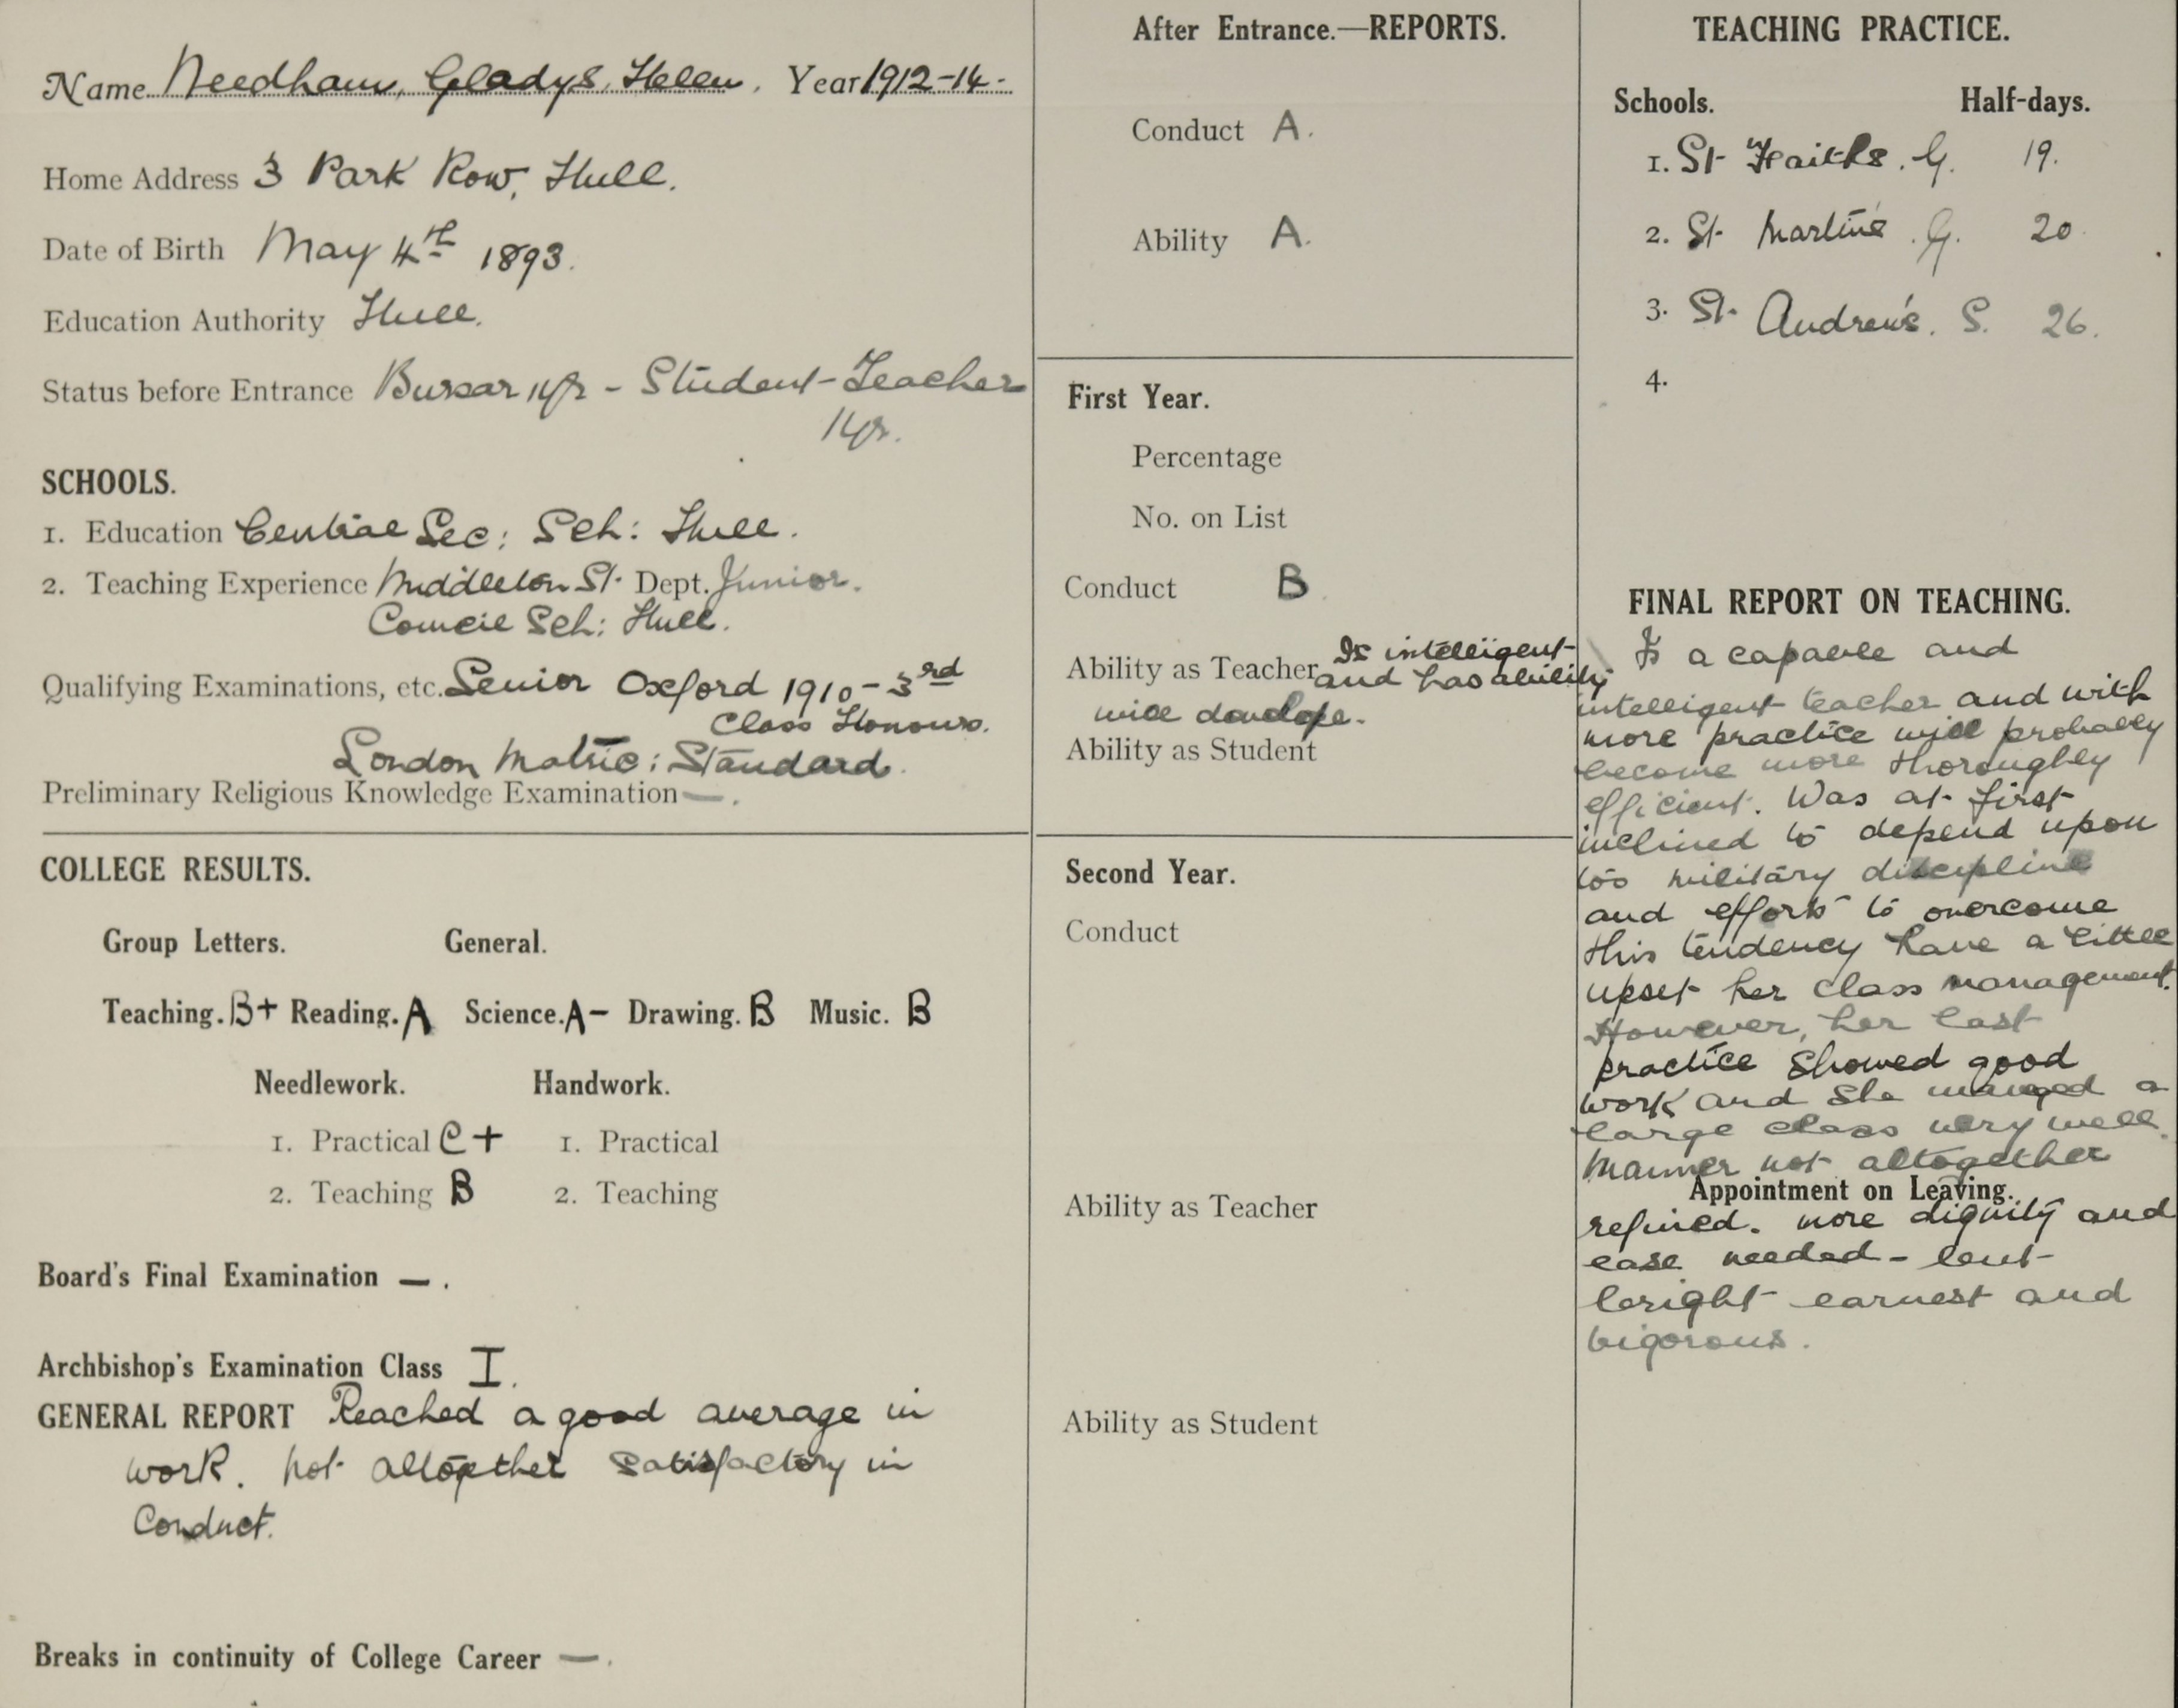 Name Needham, Gladys, Helen. Year 1912-14.
Home Address 3 Park Row, Hull.
Date of Birth May 4th 1893.
Education Authority Hull.
Status before Entrance Bursar 1yr - Student-Teacher
1yr.
SCHOOLS.
1. Education Central Sec: Sch: Hull.
2. Teaching Experience Middleton St. Dept. Junior.
Council Sch: Hull.
Qualifying Examinations, etc. Senior Oxford 1910 - 3rd
Class Honours.
London Matric: Standard.
Preliminary Religious Knowledge Examination —.
COLLEGE RESULTS.
Group Letters. General.
Teaching. B+ Reading. A Science. A- Drawing. B Music. B
Needlework. Handwork.
1. Practical C+ 1. Practical
2. Teaching B 2. Teaching
Board's Final Examination — .
Archbishop's Examination Class I.
GENERAL REPORT Reached a good average in
work. Not altogether satisfactory in
Conduct.
Breaks in continuity of College Career — .
After Entrance.—REPORTS.
Conduct A.
Ability A.
First Year.
Percentage
No. on List
Conduct B
Ability as Teacher Is intelligent
and has ability
will develope.
Ability as Student
Second Year.
Conduct
Ability as Teacher
Ability as Student
TEACHING PRACTICE.
Schools. Half-days.
1. St Faith's. G. 19.
2. St. Martin's. G. 20
3. St. Andrew's. S. 26.
4.
FINAL REPORT ON TEACHING.
Is a capable and
intelligent teacher and with
more practice will probably
become more thoroughly
efficient. Was at first
inclined to depend upon
too military discipline
and efforts to overcome
this tendency have a little
upset her class management.
However, her last
practice showed good
work and she managed a
large class very well.
Manner not altogether
Appointment on Leaving.
refined. more dignity and
ease needed - but
bright earnest and
vigorous.